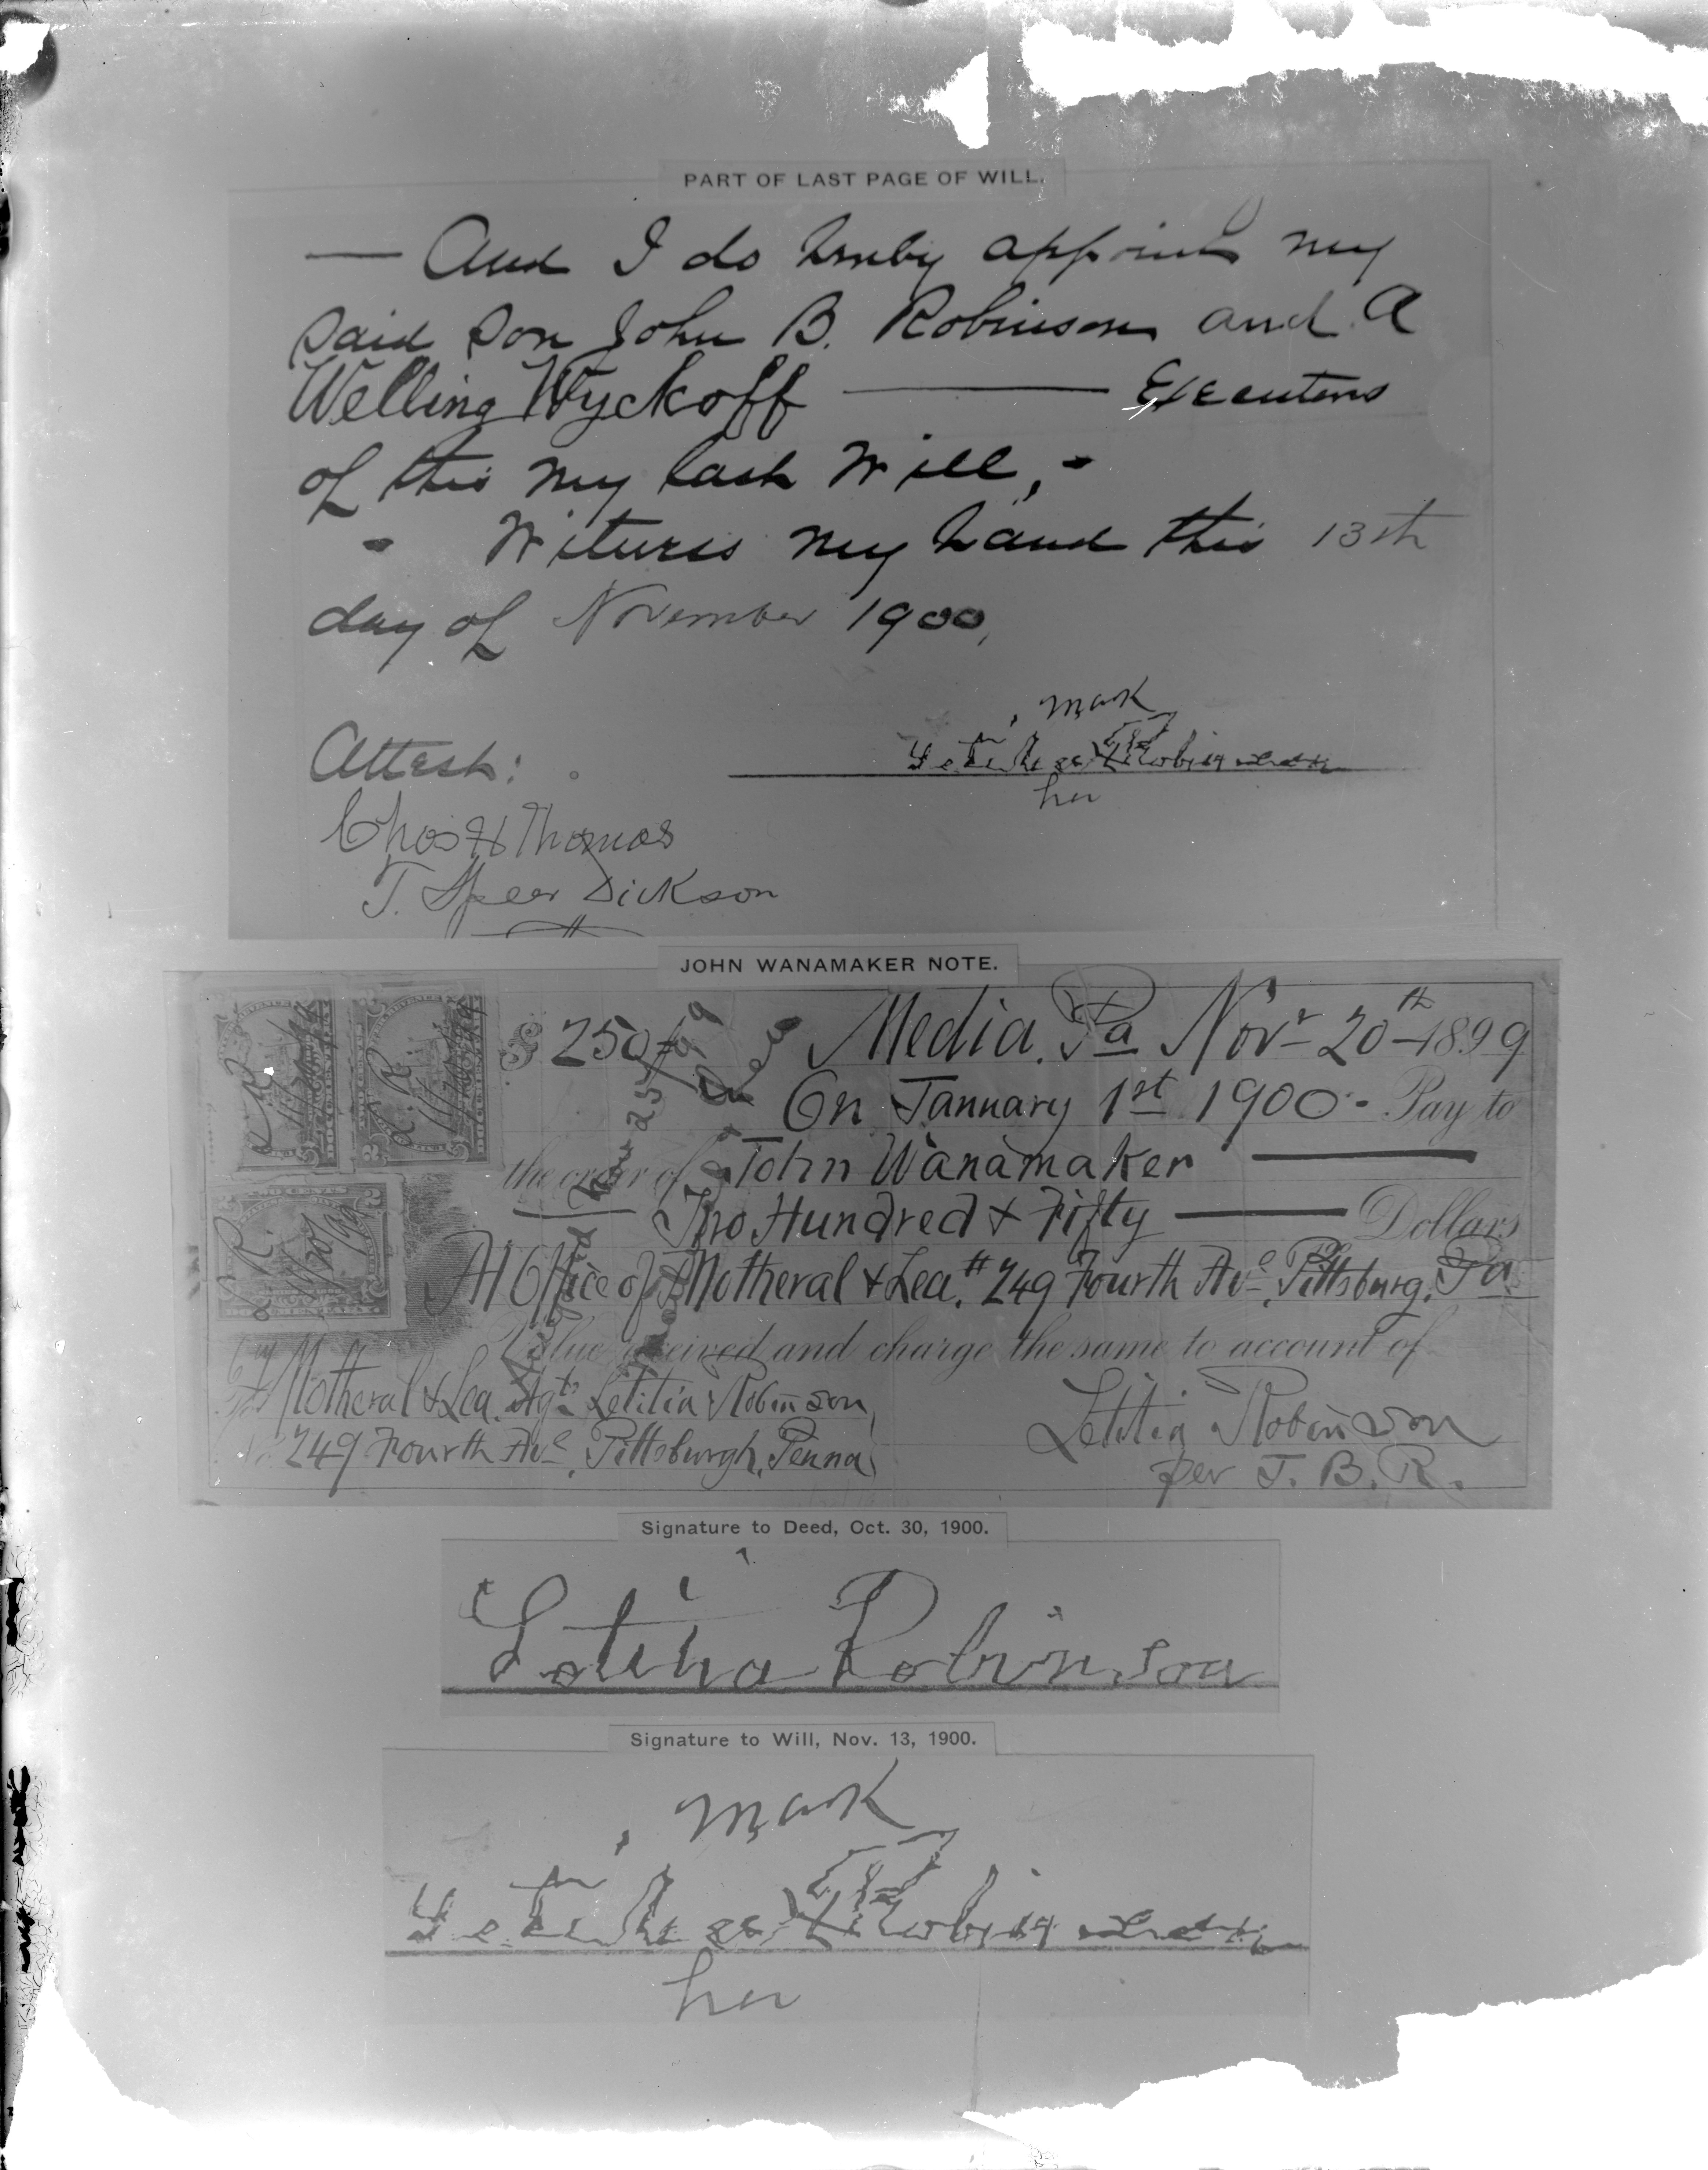 PART OF LAST PAGE OF WILL.
— And I do hereby appoint my
said son John B. Robinson and A
Welling Wyckoff — Executors
of this my last Will, -
- Witness my hand this 13th
day of November 1900,
mark
Letitia Robinson
her
Attest:
Chas H Thomas
T. Speer Dickson
JOHN WANAMAKER NOTE.
$ 250 Media, Pa Novr 20th 1899
On January 1st 1900 - Pay to
the order of John Wanamaker
Two Hundred & Fifty — Dollars
At Office of Motheral & Lea, #249 Fourth Ave, Pittsburg, Pa
Value received and charge the same to account of
Motheral & Lea, Agts Letitia Robinson,
249 Fourth Ave, Pittsburgh, Penna
Letitia Robinson
per J. B. R.
Signature to Deed, Oct. 30, 1900.
Letitia Robinson
Signature to Will, Nov. 13, 1900.
mark
Letitia Robinson
her